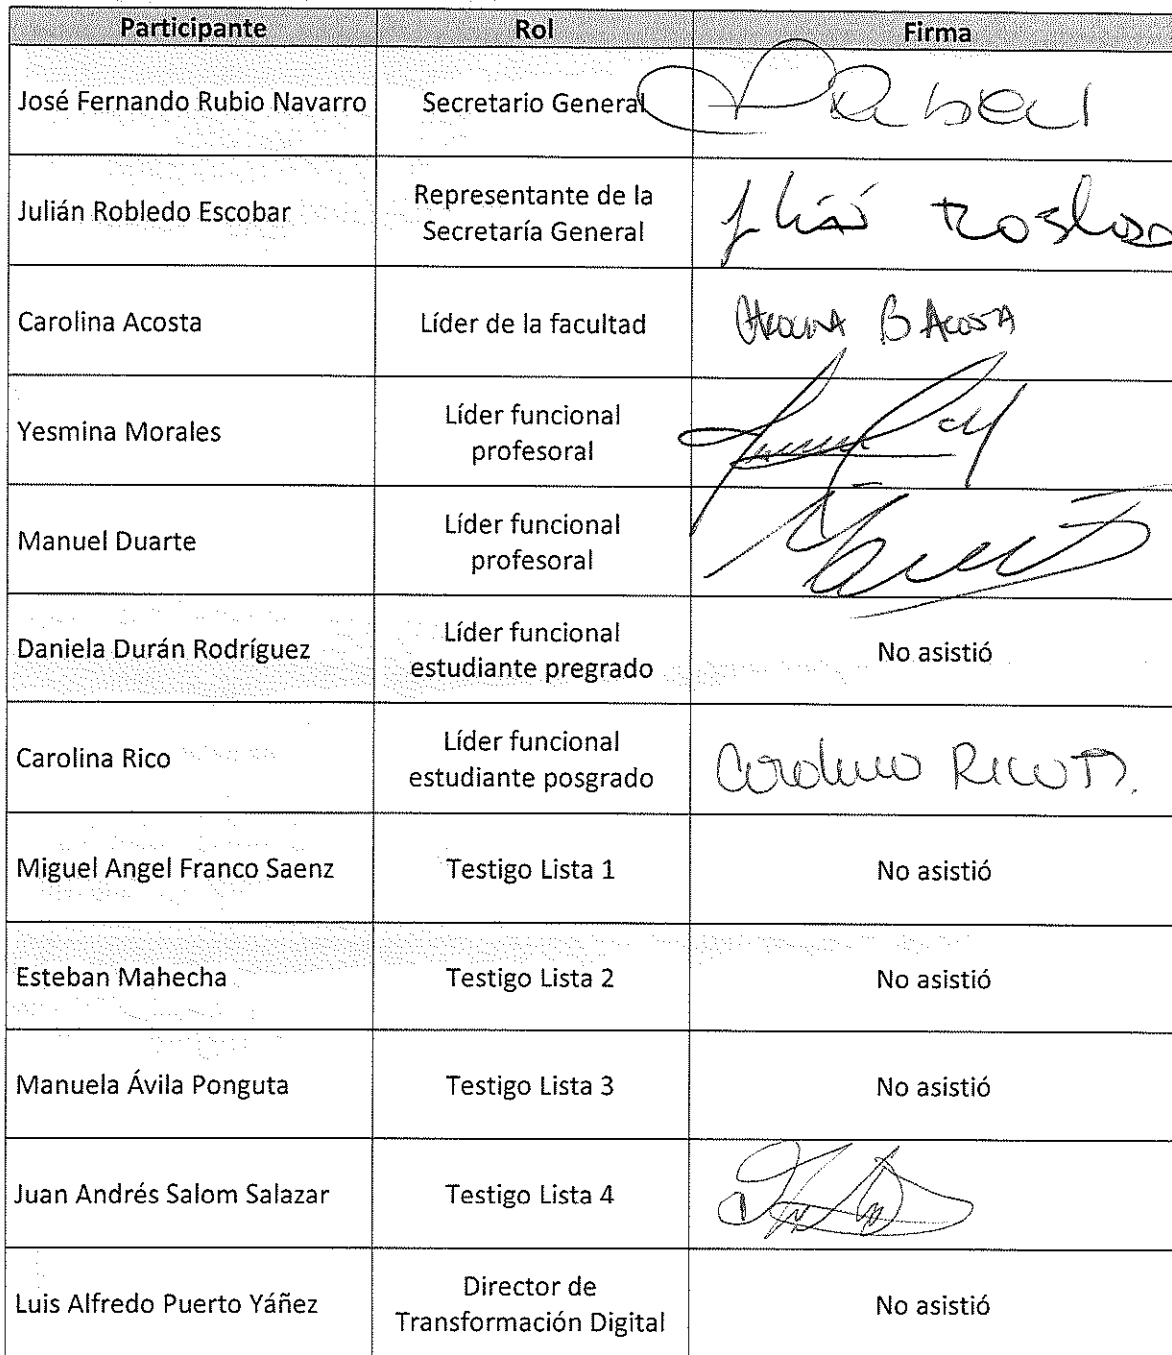 Participante Rol Firma
José Fernando Rubio Navarro Secretario General
Julián Robledo Escobar Representante de la
Secretaría General
Carolina Acosta Líder de la facultad Carolina B Acosta
Yesmina Morales Líder funcional
profesoral
Manuel Duarte Líder funcional
profesoral
Daniela Durán Rodríguez Líder funcional
estudiante pregrado No asistió
Carolina Rico Líder funcional
estudiante posgrado Carolina Rico
Miguel Angel Franco Saenz Testigo Lista 1 No asistió
Esteban Mahecha Testigo Lista 2 No asistió
Manuela Ávila Ponguta Testigo Lista 3 No asistió
Juan Andrés Salom Salazar Testigo Lista 4
Luis Alfredo Puerto Yáñez Director de
Transformación Digital No asistió